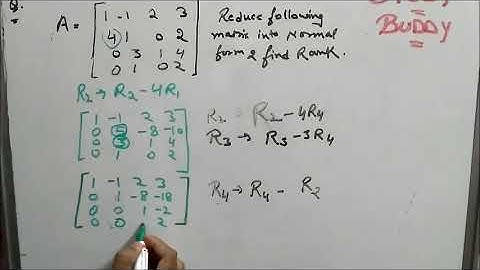 Q.
A = [ 1 -1 2 3
4 1 0 2
0 3 1 4
0 1 0 2 ]
Reduce following
matrix into Normal
form & find Rank.
BUDDY
R2 → R2 - 4R1
[ 1 -1 2 3
0 5 -8 -10
0 3 1 4
0 1 0 2 ]
R2 → R2 - 4R4
R3 → R3 - 3R4
[ 1 -1 2 3
0 1 -8 -18
0 0 1 -2
0 0 2 ]
R4 → R4 - R2